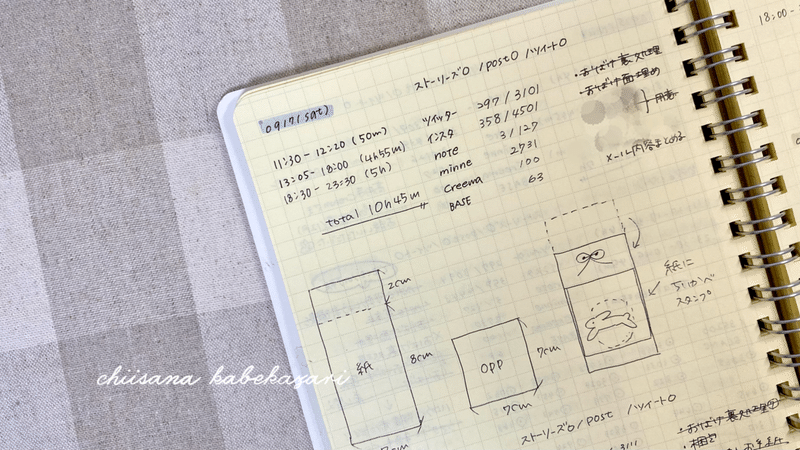 18:00-
ストーリーズ0 / post0 / ツイート0
0917(sat)
11:30-12:20 (50m)
13:05-18:00 (4h55m)
18:30-23:30 (5h)
total 10h45m
ツイッター 297/3101
インスタ 358/4501
note 3/127
minne 2731
creema 100
BASE 63
・おばけ裏処理
・おばけ面埋め
用意
メール内容まとめる
2cm
紙
8cm
OPP
7cm
7cm
紙に
スタンプ
chiisana kabekazari
ストーリーズ0 / post / ツイート0
・おばけ裏処理
・梱包